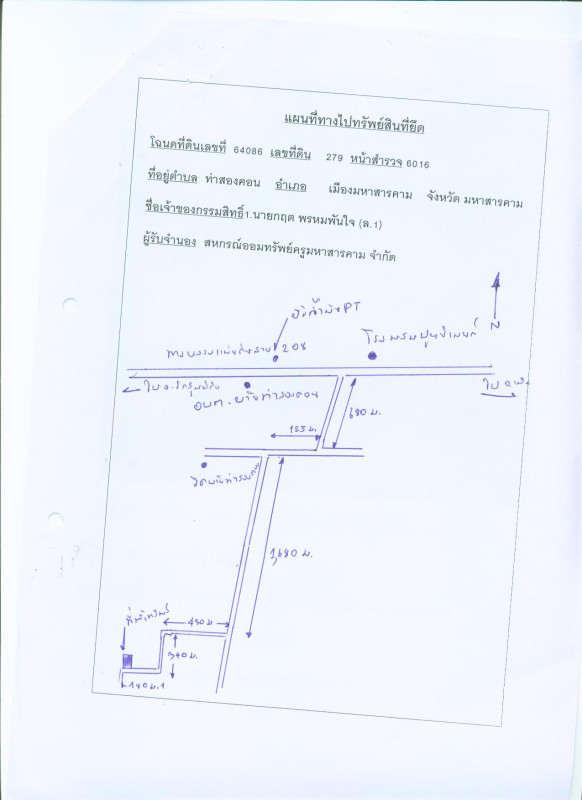 แผนที่ทางไปทรัพย์สินที่ยึด
โฉนดที่ดินเลขที่ 64086 เลขที่ดิน 279 หน้าสำรวจ 6016
ที่อยู่ตำบล ท่าสองคอน อำเภอ เมืองมหาสารคาม จังหวัด มหาสารคาม
ชื่อเจ้าของกรรมสิทธิ์ 1.นายกฤต พรหมพันใจ (ล.1)
ผู้รับจำนอง สหกรณ์ออมทรัพย์ครูมหาสารคาม จำกัด
PT
N
ทางหลวงแผ่นดินหมายเลข 208
อบต.บ้านท่าสองคอน
680 ม.
185 ม.
วัดบ้านท่าสองคอน
1,680 ม.
ที่ตั้งทรัพย์
480 ม.
340 ม.
140 ม.